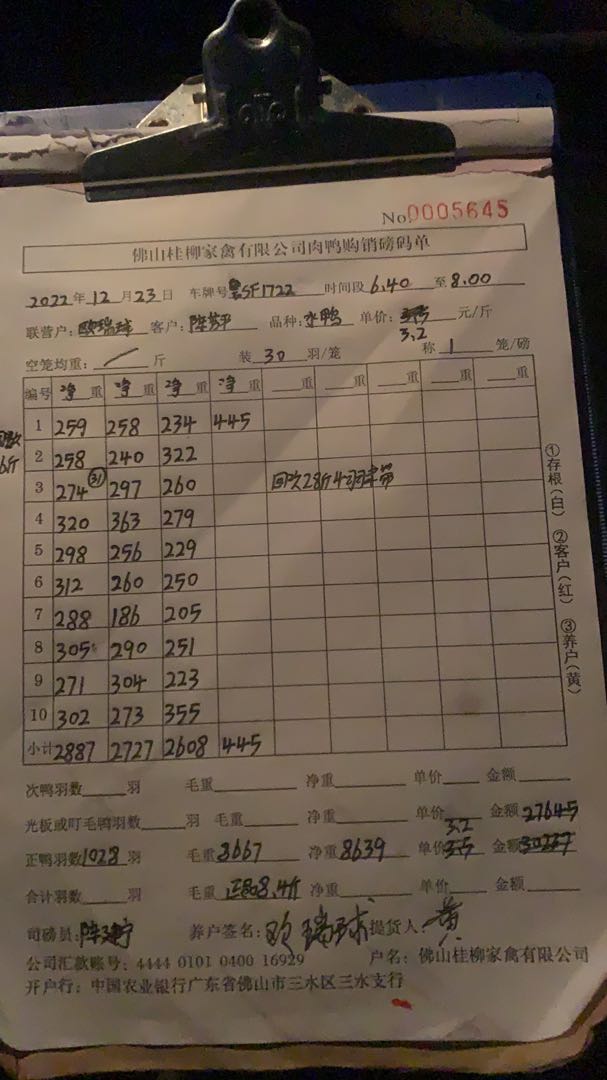 No.0005645
佛山桂柳家禽有限公司肉鸭购销磅码单
2022年12月23日 车牌号粤SF1722 时间段6.40至8.00
联营户:欧瑞球 客户: 品种:鸭 单价:3.2元/斤
空笼均重:/斤 装30羽/笼 称1笼/磅
编号 净重 净重 净重 净重 重 重 重 重
1 259 258 234 445
2 258 240 322
3 274 (31) 297 260 回次28斤4羽
4 320 363 279
5 298 256 229
6 312 260 250
7 288 186 205
8 305 290 251
9 271 304 223
10 302 273 355
小计 2887 2727 2608 445
次鸭羽数 羽 毛重 净重 单价 金额
光板或叮毛鸭羽数 羽 毛重 净重 单价 金额27645
正鸭羽数1028羽 毛重8667 净重8639 单价3.5 3.2 金额30237
合计羽数 羽 毛重 正品8.4斤 净重 单价 金额
司磅员: 养户签名:欧瑞球 提货人:黄
公司汇款账号:4444 0101 0400 16929 户名:佛山桂柳家禽有限公司
开户行:中国农业银行广东省佛山市三水区三水支行
①存根(白) ②客户(红) ③养户(黄)